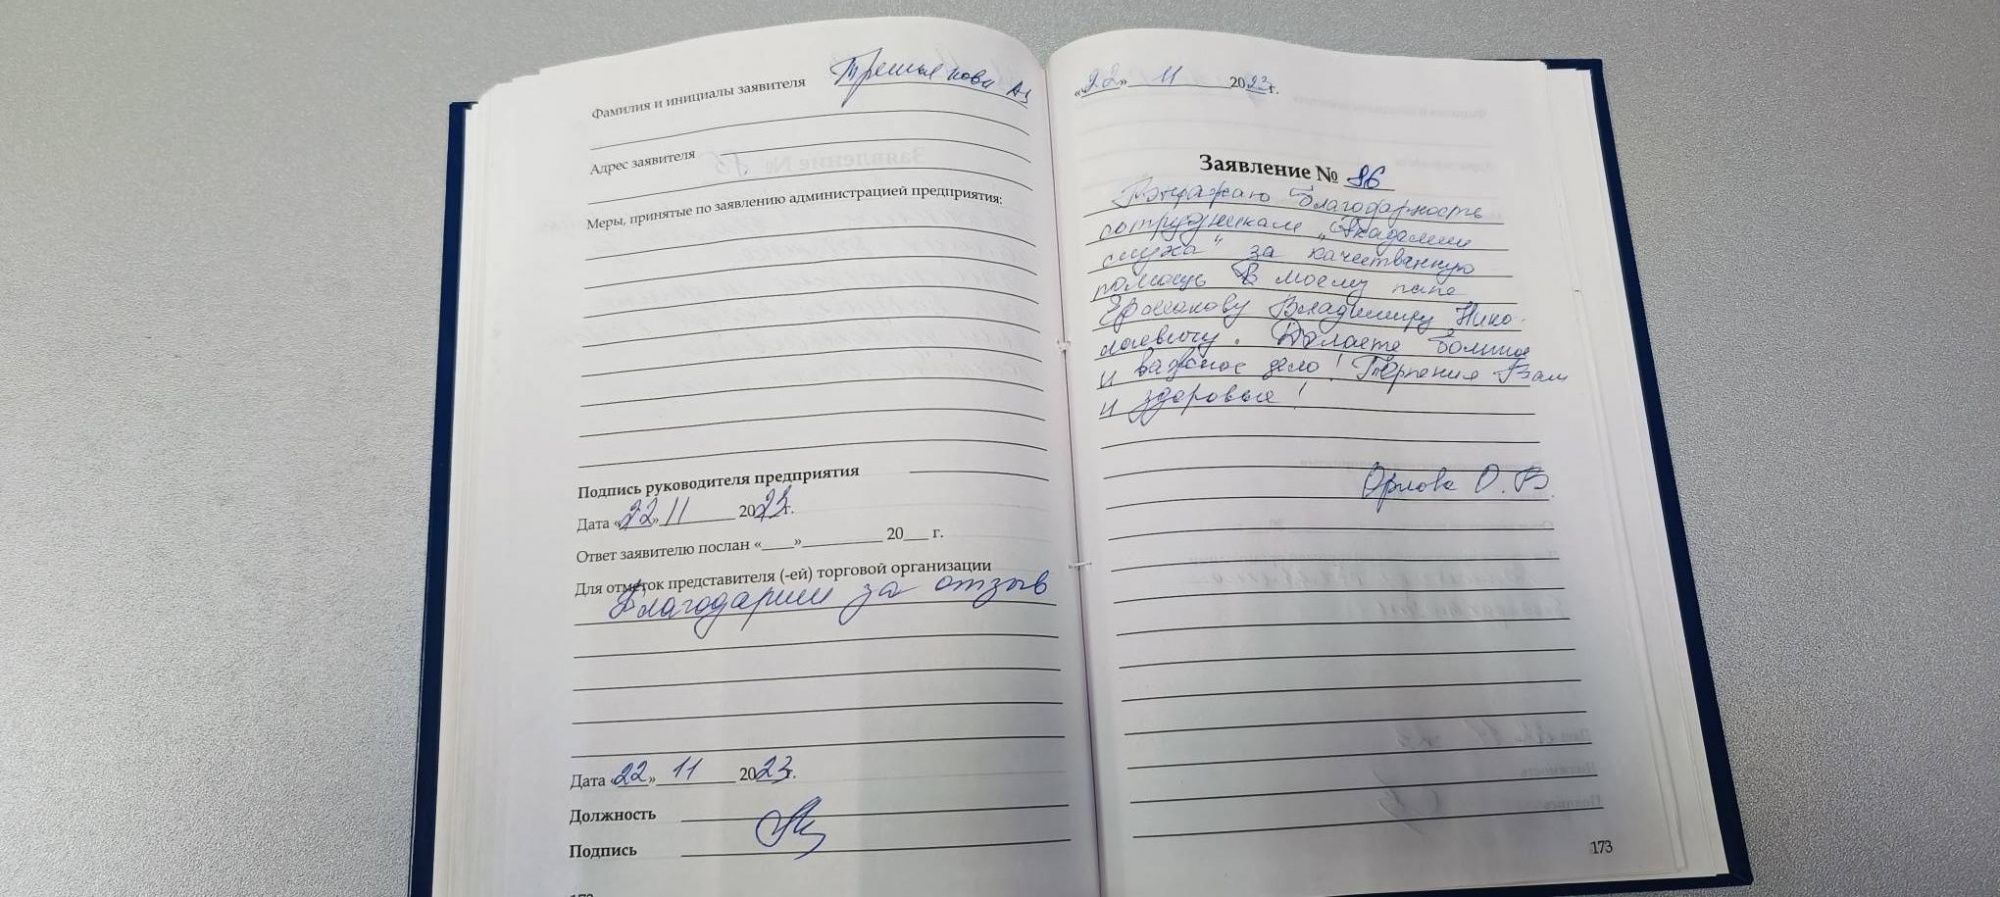 Фамилия и инициалы заявителя Третьякова АЗ
Адрес заявителя
Меры, принятые по заявлению администрацией предприятия:
Подпись руководителя предприятия
Дата «22» 11 2023г.
Ответ заявителю послан «____»__________ 20___ г.
Для отметок представителя (-ей) торговой организации
Благодарим за отзыв
Дата «22» 11 2023г.
Должность
Подпись
«22» 11 2023г.
Заявление № 86
Выражаю благодарность
сотрудникам „Академии
слуха" за качественную
помощь в моему папе
Владимиру Нико-
лаевичу. Делаете большое
и важное дело! Терпения Вам
и здоровья!
Орлова О.В.
173